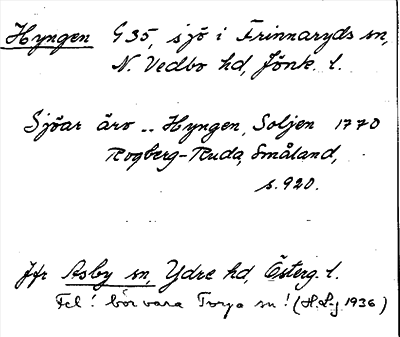 Hyngen G 35, sjö i Frinnaryds sn,
N. Vedbo hd, Jönk. l.
Sjöar äro .. Hyngen, Soljen 1770
Rogberg-Ruda, Småland,
s. 920.
Jfr Asby sn, Ydre hd, Österg. l.
Fel! bör vara Torpa sn! (H. Lj. 1936)